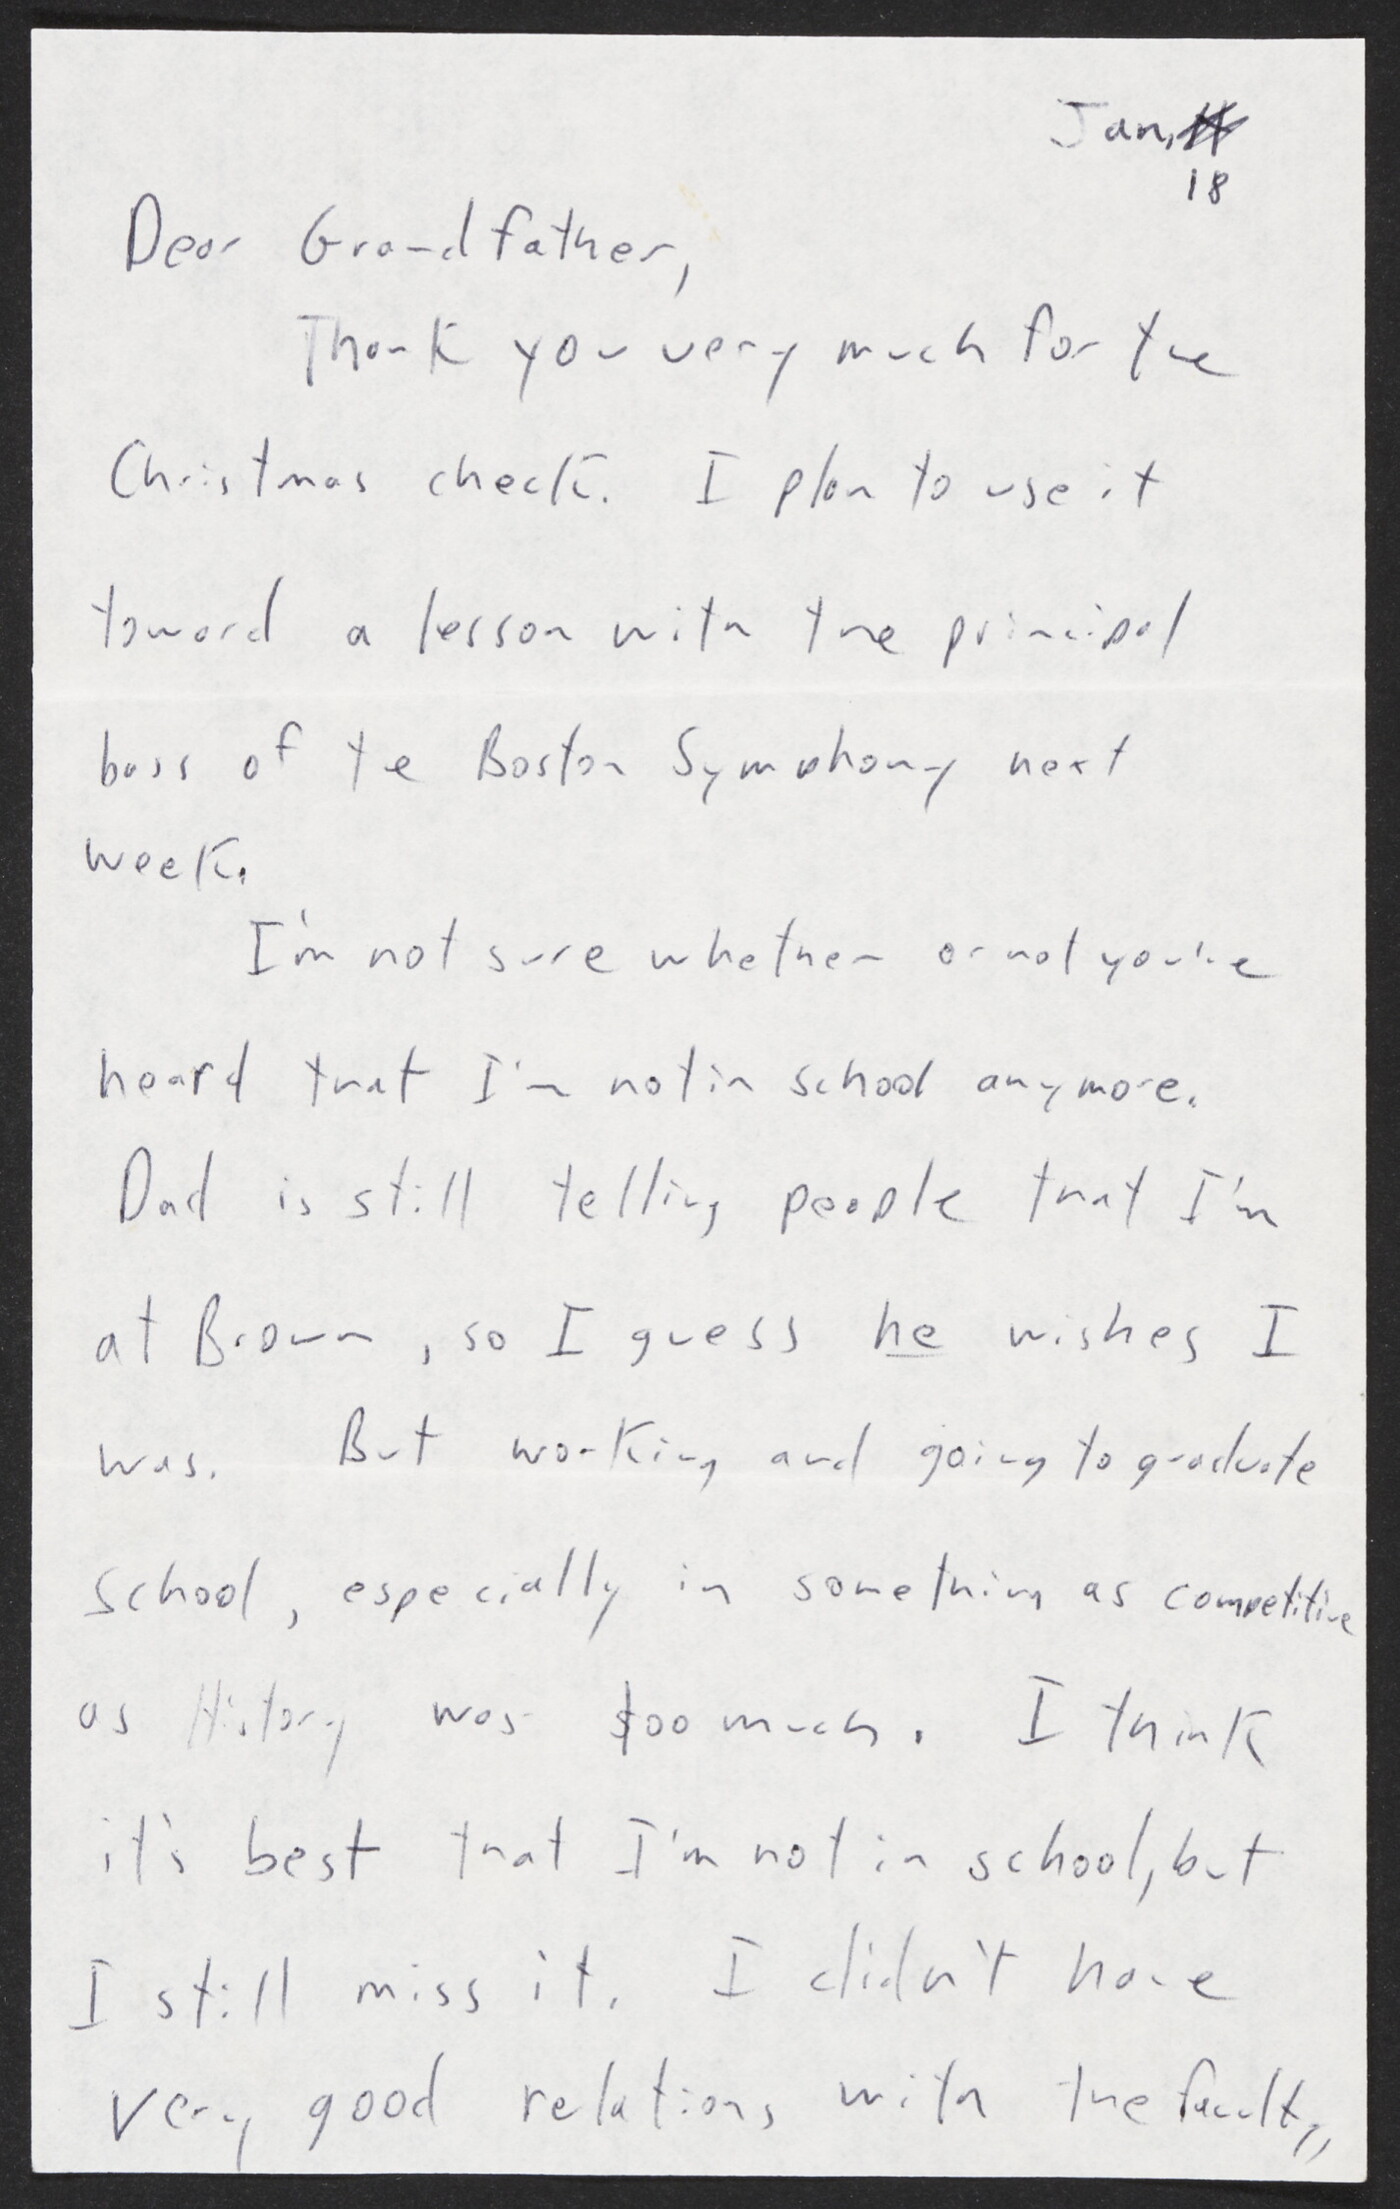 Jan.
18
Dear Grandfather,
Thank you very much for the
Christmas check. I plan to use it
toward a lesson with the principal
bass of te Boston Symphony next
week.
I'm not sure whether or not you've
heard that I'm not in school anymore.
Dad is still telling people that I'm
at Brown, so I guess he wishes I
was. But working and going to graduate
school, especially in something as competitive
as History was too much. I think
it's best that I'm not in school, but
I still miss it. I didn't have
very good relations with the faculty,